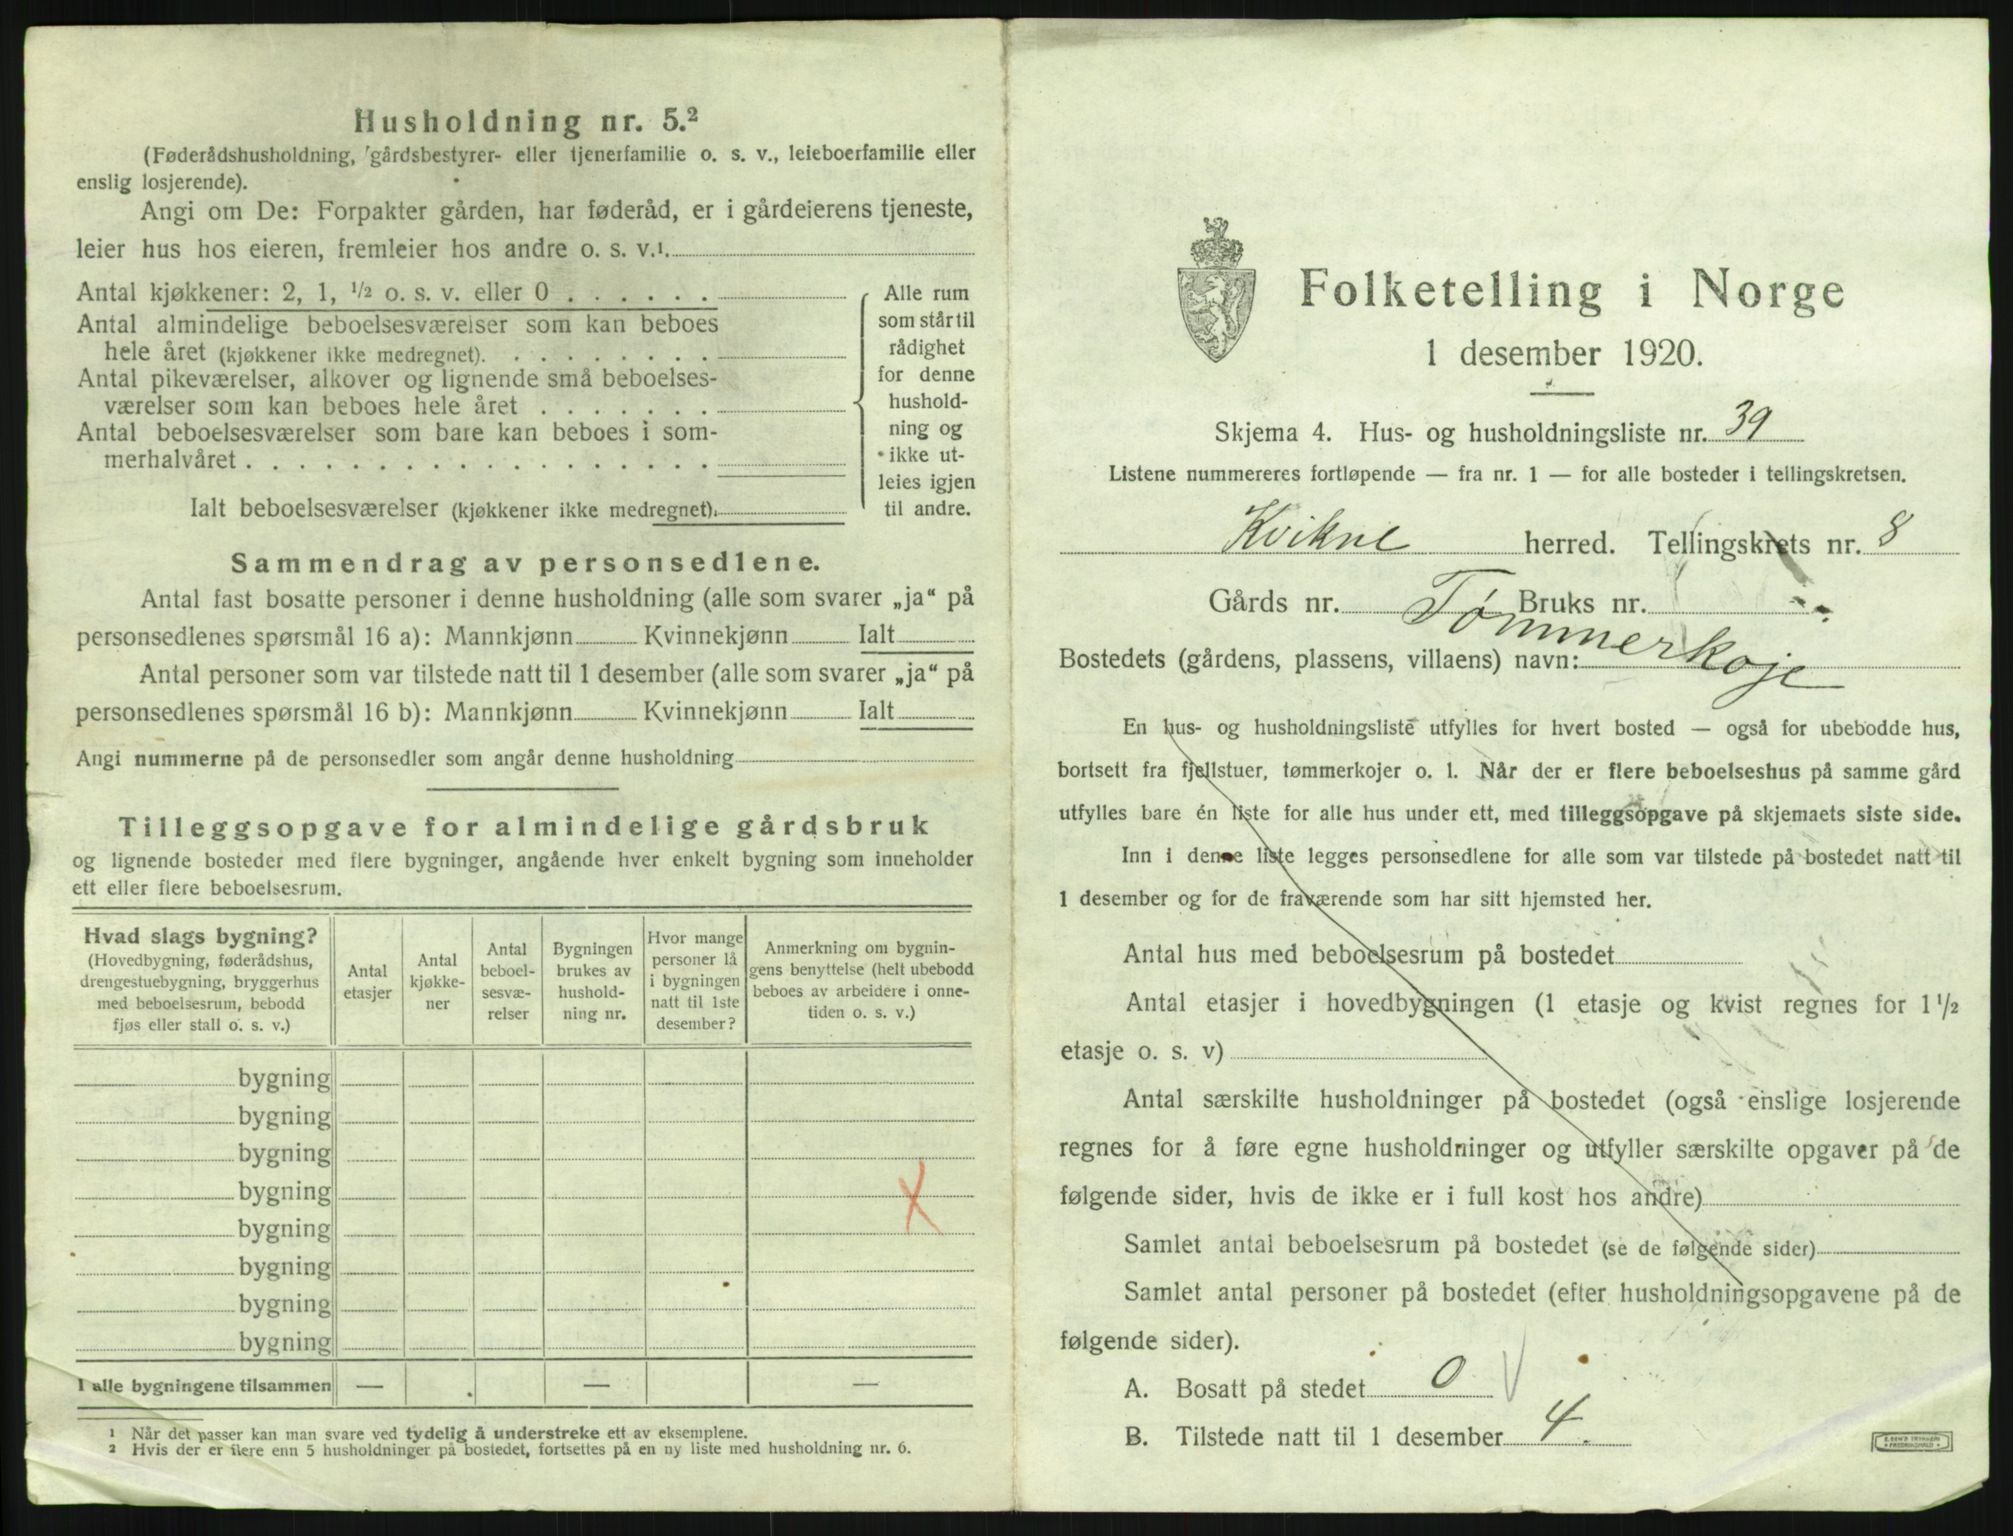 Husholdning nr. 5.²
(Føderådshusholdning, gårdsbestyrer- eller tjenerfamilie o. s. v., leieboerfamilie eller
enslig losjerende).
Angi om De: Forpakter gården, har føderåd, er i gårdeierens tjeneste,
leier hus hos eieren, fremleier hos andre o. s. v.¹
Antal kjøkkener: 2, 1, ½ o. s. v. eller 0
Antal almindelige beboelsesværelser som kan beboes
hele året (kjøkkener ikke medregnet).
Antal pikeværelser, alkover og lignende små beboelses-
værelser som kan beboes hele året
Antal beboelsesværelser som bare kan beboes i som-
merhalvåret
Ialt beboelsesværelser (kjøkkener ikke medregnet).
Alle rum
som står til
rådighet
for denne
hushold-
ning og
ikke ut-
leies igjen
til andre.
Sammendrag av personsedlene.
Antal fast bosatte personer i denne husholdning (alle som svarer „ja“ på
personsedlenes spørsmål 16 a): Mannkjønn Kvinnekjønn Ialt
Antal personer som var tilstede natt til 1 desember (alle som svarer „ja“ på
personsedlenes spørsmål 16 b): Mannkjønn Kvinnekjønn Ialt
Angi nummerne på de personsedler som angår denne husholdning
Tilleggsopgave for almindelige gårdsbruk
og lignende bosteder med flere bygninger, angående hver enkelt bygning som inneholder
ett eller flere beboelsesrum.
Hvad slags bygning?
(Hovedbygning, føderådshus,
drengestuebygning, bryggerhus
med beboelsesrum, bebodd
fjøs eller stall o. s. v.)
Antal
etasjer
Antal
kjøkke-
ner
Antal
beboel-
sesvæ-
relser
Bygningen
brukes av
hushold-
ning nr.
Hvor mange
personer lå
i bygningen
natt til 1ste
desember?
Anmerkning om bygnin-
gens benyttelse (helt ubebodd
beboes av arbeidere i onne-
tiden o. s. v.)
bygning
bygning
bygning
bygning
bygning
bygning
bygning
bygning
I alle bygningene tilsammen — — —
¹ Når det passer kan man svare ved tydelig å understreke ett av eksemplene.
² Hvis der er flere enn 5 husholdninger på bostedet, fortsettes på en ny liste med husholdning nr. 6.
Folketelling i Norge
1 desember 1920.
Skjema 4. Hus- og husholdningsliste nr. 39
Listene nummereres fortløpende — fra nr. 1 — for alle bosteder i tellingskretsen.
Kvikne herred. Tellingskrets nr. 8
Gårds nr. Bruks nr.
Bostedets (gårdens, plassens, villaens) navn: Tømmerkoje
En hus- og husholdningsliste utfylles for hvert bosted — også for ubebodde hus,
bortsett fra fjellstuer, tømmerkojer o. l. Når der er flere beboelseshus på samme gård
utfylles bare én liste for alle hus under ett, med tilleggsopgave på skjemaets siste side.
Inn i denne liste legges personsedlene for alle som var tilstede på bostedet natt til
1 desember og for de fraværende som har sitt hjemsted her.
Antal hus med beboelsesrum på bostedet
Antal etasjer i hovedbygningen (1 etasje og kvist regnes for 1½
etasje o. s. v)
Antal særskilte husholdninger på bostedet (også enslige losjerende
regnes for å føre egne husholdninger og utfyller særskilte opgaver på de
følgende sider, hvis de ikke er i full kost hos andre)
Samlet antal beboelsesrum på bostedet (se de følgende sider)
Samlet antal personer på bostedet (efter husholdningsopgavene på de
følgende sider).
A. Bosatt på stedet 0
B. Tilstede natt til 1 desember 4.